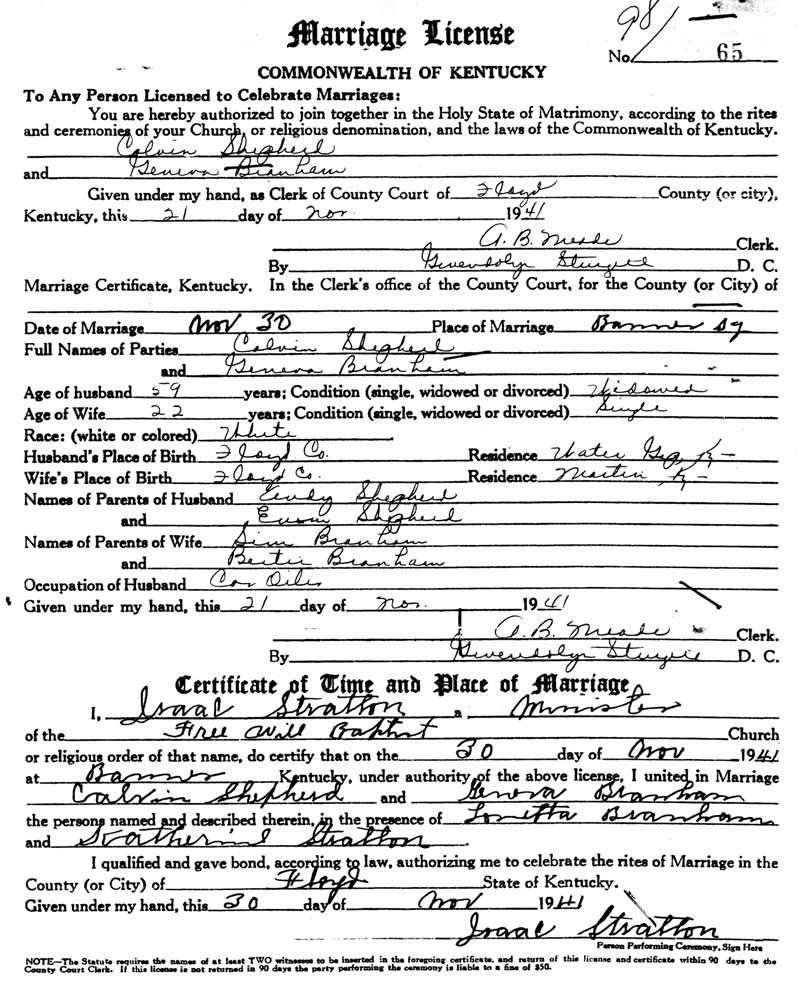 Marriage License
98/
No. 65
COMMONWEALTH OF KENTUCKY
To Any Person Licensed to Celebrate Marriages:
You are hereby authorized to join together in the Holy State of Matrimony, according to the rites
and ceremonies of your Church, or religious denomination, and the laws of the Commonwealth of Kentucky.
Calvin Shepherd
and Geneva Branham
Given under my hand, as Clerk of County Court of Floyd County (or city),
Kentucky, this 21 day of Nov. 1941
A. B. Meade Clerk.
By Gwendolyn Sturgill D. C.
Marriage Certificate, Kentucky. In the Clerk's office of the County Court, for the County (or City) of
Date of Marriage Nov 30 Place of Marriage Banner
Full Names of Parties Calvin Shepherd
and Geneva Branham
Age of husband 59 years; Condition (single, widowed or divorced) Widowed
Age of Wife 22 years; Condition (single, widowed or divorced) Single
Race: (white or colored) White
Husband's Place of Birth Floyd Co. Residence Water Gap, Ky
Wife's Place of Birth Floyd Co. Residence Martin, Ky
Names of Parents of Husband Shepherd
and Shepherd
Names of Parents of Wife Sim Branham
and Bertie Branham
Occupation of Husband Car Oiler
Given under my hand, this 21 day of Nov. 1941
A. B. Meade Clerk.
By Gwendolyn Sturgill D. C.
Certificate of Time and Place of Marriage
I, Isaac Stratton a Minister
of the Free Will Baptist Church
or religious order of that name, do certify that on the 30 day of Nov 1941
at Banner Kentucky, under authority of the above license, I united in Marriage
Calvin Shepherd and Geneva Branham
the persons named and described therein, in the presence of Loretta Branham
and Katherine Stratton
I qualified and gave bond, according to law, authorizing me to celebrate the rites of Marriage in the
County (or City) of Floyd State of Kentucky.
Given under my hand, this 30 day of Nov 1941
Isaac Stratton
Person Performing Ceremony, Sign Here
NOTE—The Statute requires the names of at least TWO witnesses to be inserted in the foregoing certificate, and return of this license and certificate within 90 days to the
County Court Clerk. If this license is not returned in 90 days the party performing the ceremony is liable to a fine of $50.